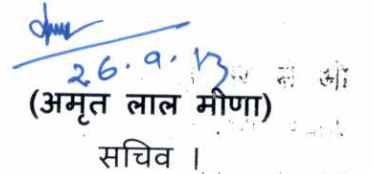 26.9.13
(अमृत लाल मीणा)
सचिव ।